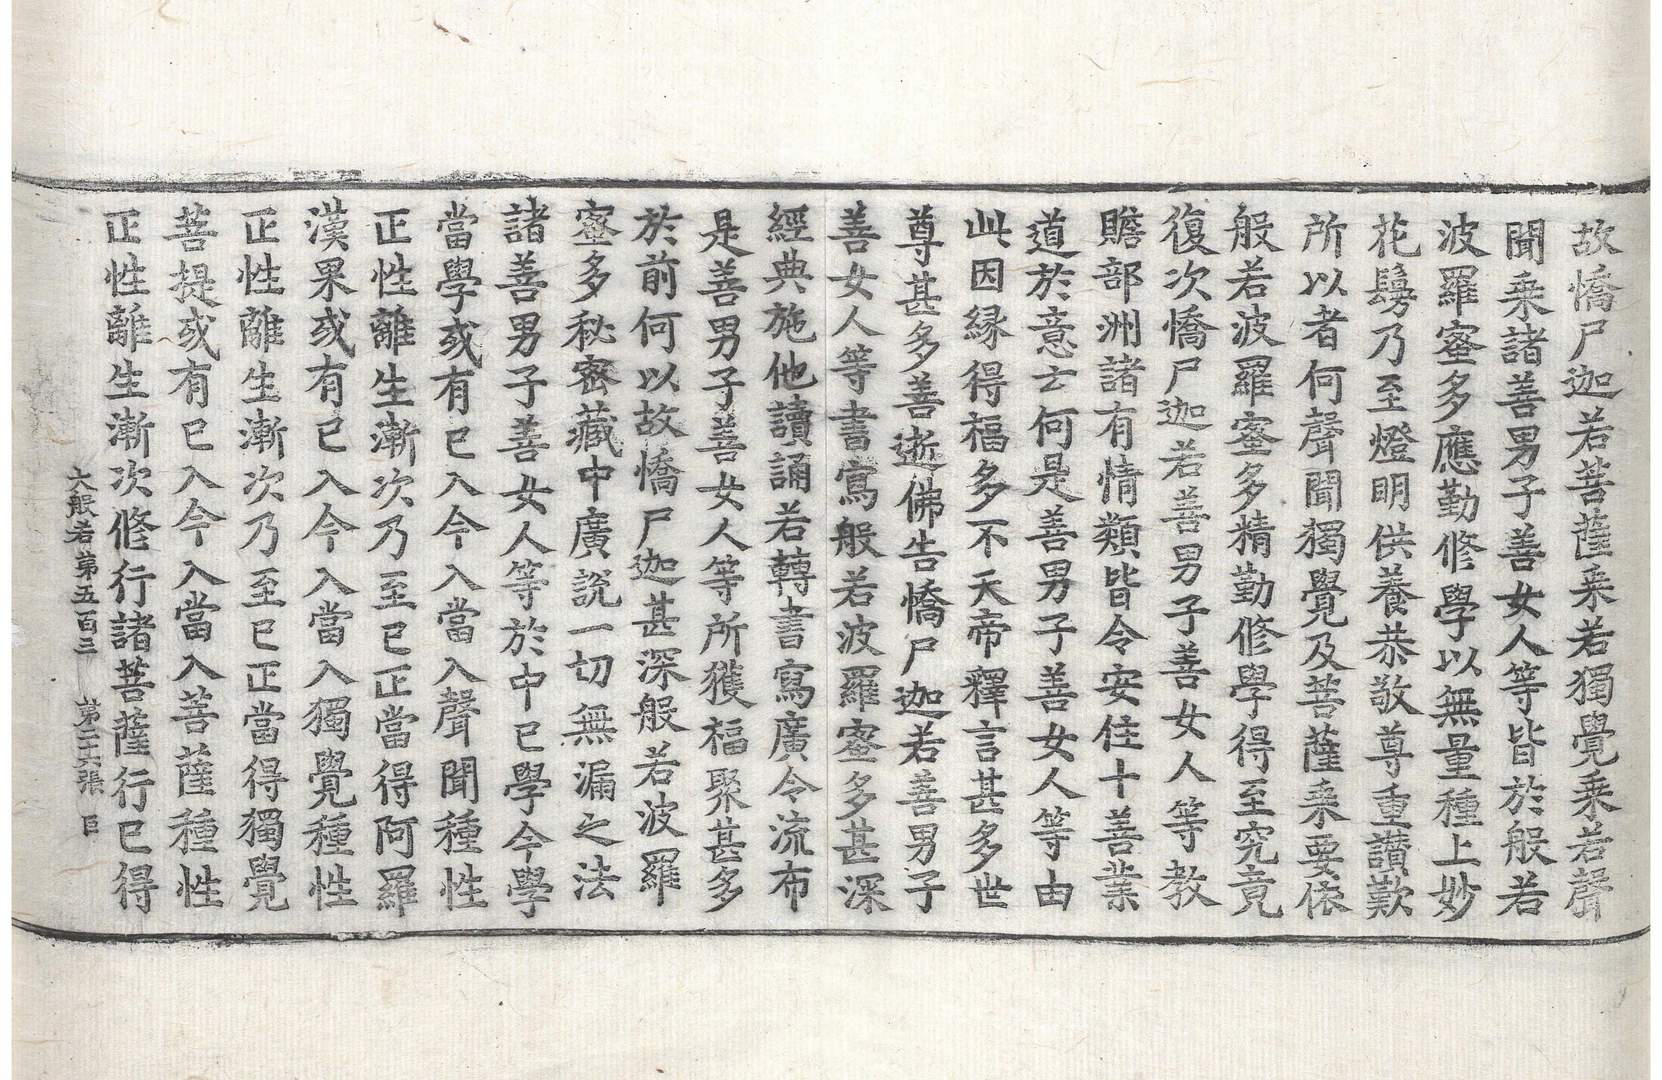 故憍尸迦若菩薩乘若獨覺乘若聲
聞乘諸善男子善女人等皆於般若
波羅蜜多應勤修學以無量種上妙
花鬘乃至燈明供養恭敬尊重讃歎
所以者何聲聞獨覺及菩薩乘要依
般若波羅蜜多精勤修學得至究竟
復次憍尸迦若善男子善女人等教
贍部洲諸有情類皆令安住十善業
道於意云何是善男子善女人等由
此因緣得福多不天帝釋言甚多世
尊甚多善逝佛告憍尸迦若善男子
善女人等書寫般若波羅蜜多甚深
經典施他讀誦若轉書寫廣令流布
是善男子善女人等所獲福聚甚多
於前何以故憍尸迦甚深般若波羅
蜜多秘密藏中廣說一切無漏之法
諸善男子善女人等於中已學今學
當學或有已入今入當入聲聞種性
正性離生漸次乃至已正當得阿羅
漢果或有已入今入當入獨覺種性
正性離生漸次乃至已正當得獨覺
菩提或有已入今入當入菩薩種性
正性離生漸次修行諸菩薩行已得
大般若第五百三 第二十六張 巨